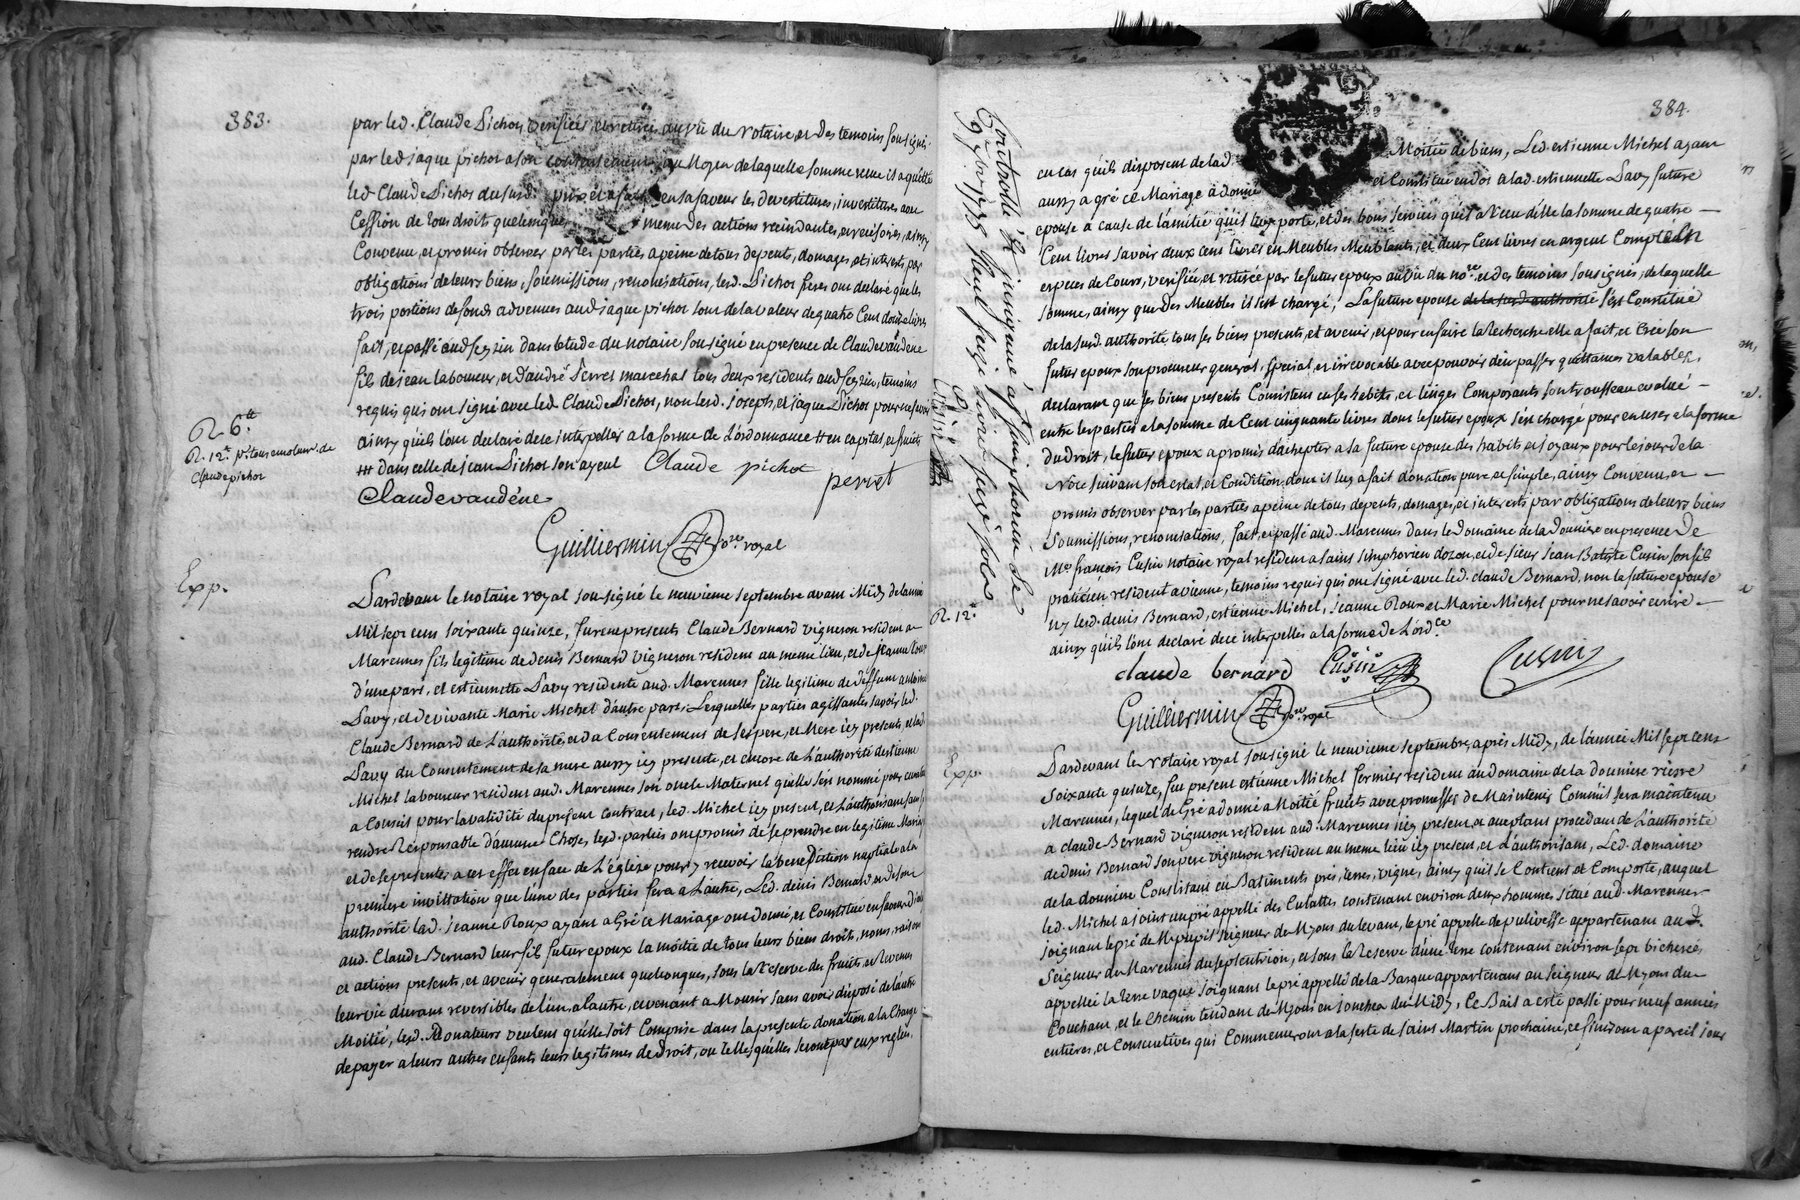 383.
par led. Claude Pichot verifiée, et retirée au vû du notaire et des temoins soussignés
par led jaque pichot a son contentement, au Moyen de laquelle somme recue il a quitté
led Claude Pichot du surd. prix et a fait en sa faveur les devestitures, investitures avec
Cession de tous droits quelconques meme des actions rescindantes, et rescisoires, ainsy
Convenu, et promis observer par les parties a peine de tous depents, domages et interests, par
obligations de leurs biens, soumissions, renonciations, lesd. Pichot freres ont declaré que les
trois portions de fonds advenues aud jaque pichot sont de la valeur de quatre Cent douze livres
fait, et passé aud seyzin dans letude du notaire soussigné en presence de Claude vandene
fils de jean laboureur, et d'andré Perret marechal tous deux residents aud seyzin, temoins
requis qui ont signé avec led Claude Pichot, non lesd. joseph, et jaque Pichot pour ne scavoir
ainsy quils l'ont declaré de ce interpellés a la forme de L'ordonnance ## en capital, et fruits
### dans celle de jean Pichot son ayeul Claude pichot
perret
R. 6.tt
R. 12.s pr. tous emolum. de
Claude pichot
Claude vandene
Guilliermin no.re royal
Exp.
Pardevant le notaire royal soussigné le neuvieme septembre avant Midy de lannée
Mil sept cens soixante quinze, furent presents Claude Bernard vigneron resident a
Marennes fils legitime de denis Bernard vigneron resident au meme lieu, et de jeanne Roux
d'une part, et estiennette Savy residente aud. Marennes fille legitime de deffunt antoine
Savy, et de vivante Marie Michel d'autre part, Lesquelles parties agissantes, savoir led.
Claude Bernard de L'authorité, et du Consentement de ses pere, et Mere icy presents, et lad
Savy du Consentement de sa mere aussy icy presente, et encore de L'authorité destienne
Michel laboureur resident aud. Marennes son oncle Maternel quelle s'en nommé pour curateur
a Conseil pour la validité du present contract, led. Michel icy present, et L'authorisant sans se
rendre Responsable d'aucune Chose, lesd. parties ont promis de se prendre en legitime Mariage
et de se presenter a cet effet en face de L'église pour y recevoir la benediction nuptiale a la
premiere invittation que l'une des parties fera a Lautre, Led. denis Bernard, et de son
authorité lad. jeanne Roux ayant a Gré ce Mariage ont donné, et Constitué en faveur d'icelui
aud. Claude Bernard leur fils futur epoux la moitié de tous leurs biens droits, noms, raisons
et actions presents, et avenir generalement quelconques, sous la Reserve des fruits, et Revenus
leur vie durant reversibles de l'un, a l'autre, et venant a Mourir sans avoir disposé de l'autre
Moitié, lesd. Donateurs veulent qu'elle soit Comprise dans la presente donation a la Charge
de payer a leurs autres enfants leurs legitimes de Droit, ou telles qu'elles seront par eux reglées,
384.
en cas qu'ils disposent de lad. Moitié de biens, Led. estienne Michel ayant
aussy a gré ce Mariage a donné et Constitué en dot a lad. estiennette Savy future
epouse a cause de l'amitié qu'il luy porte, et des bons services qu'il a Reçu d'elle la somme de quatre
Cent livres savoir deux cent livres en Meubles Meublants, et deux Cent livres en argent Comptant
especes de Cours, verifiée, et retirée par le futur epoux au vû du no.re et des temoins soussignés, de laquelle
somme, ainsy que des Meubles il s'est chargé, La future epouse de la surd authorité s'est Constitué
de la surd. authorité tous ses biens presents, et avenir, et pour en faire la Recherche elle a fait, et Créé son
futur epoux son procureur general, special, et irrevocable avec pouvoir d'en passer quittances valables,
declarant que ses biens presents Consistent en ses habits, et linges Composants son trousseau evalué
entre les parties a la somme de Cent cinquante livres dont le futur epoux s'en charge pour en user a la forme
du Droit, le futur epoux a promis d'achepter a la future epouse des habits et joyaux pour le jour de la
Noce suivant son estat, et Condition, dont il luy a fait donation pure, et simple, ainsy Convenu, et
promis observer par les parties a peine de tous depents, domages, et interests par obligations de leurs biens
Soumissions, renonciations, fait, et passé aud. Marennes dans le Domaine de la Douniere en presence De
Me. françois Cusin notaire royal resident a saint simphorien dozon, et de sieur jean Batiste Cusin son fils
praticien resident a vienne, temoins requis qui ont signé avec led. claude Bernard, non la future epouse
ny lesd. denis Bernard, estienne Michel, jeanne Roux et Marie Michel pour ne savoir ecrire
ainsy quils l'ont declaré de ce interpellés a la forme de L'ord.ce
claude bernard Cusin Cusin
Guilliermin no.re royal
Controllé & insinué a st simphorien le
9 7bre 1775 Recu seize livres
R. 12.s
Exp.
Pardevant le notaire royal soussigné le neuvieme septembre, après Midy, de l'année Mil sept cens
soixante quinze, fut present estienne Michel fermier resident au domaine de la douniere riere
Marennes, lequel de Gré a donné a Moitié fruits avec promesses de Maintenir Commis sera maintenu
a claude Bernard vigneron resident aud. Marennes icy present, et acceptant procedant de L'authorité
de denis Bernard son pere vigneron resident au meme lieu icy present, et L'authorisant, Led. domaine
de la douniere Consistant en Batiments prés, terres, vigne, ainsy qu'il se Contient et Comporte, auquel
led. Michel a joint un pré appellé des Culattes contenant environ deux hommes situé aud. Marennes
joignant le pré de Mr. pupil seigneur de Myons du levant, le pré appellé de pulivesse appartenant au d.
Seigneur de Marennes du septentrion, et sous la Reserve d'une terre contenant environ sept bicherées
appellée la terre vaque joignant le pré appellé de la Barque appartenant au seigneur de Myons du
Couchant, et le Chemin tendant de Myons en jonchea du Midy, Ce Bail a esté passé pour neuf années
entieres, et Consecutives qui Commenceront a la feste de saint Martin prochaine, et finiront a pareil jour